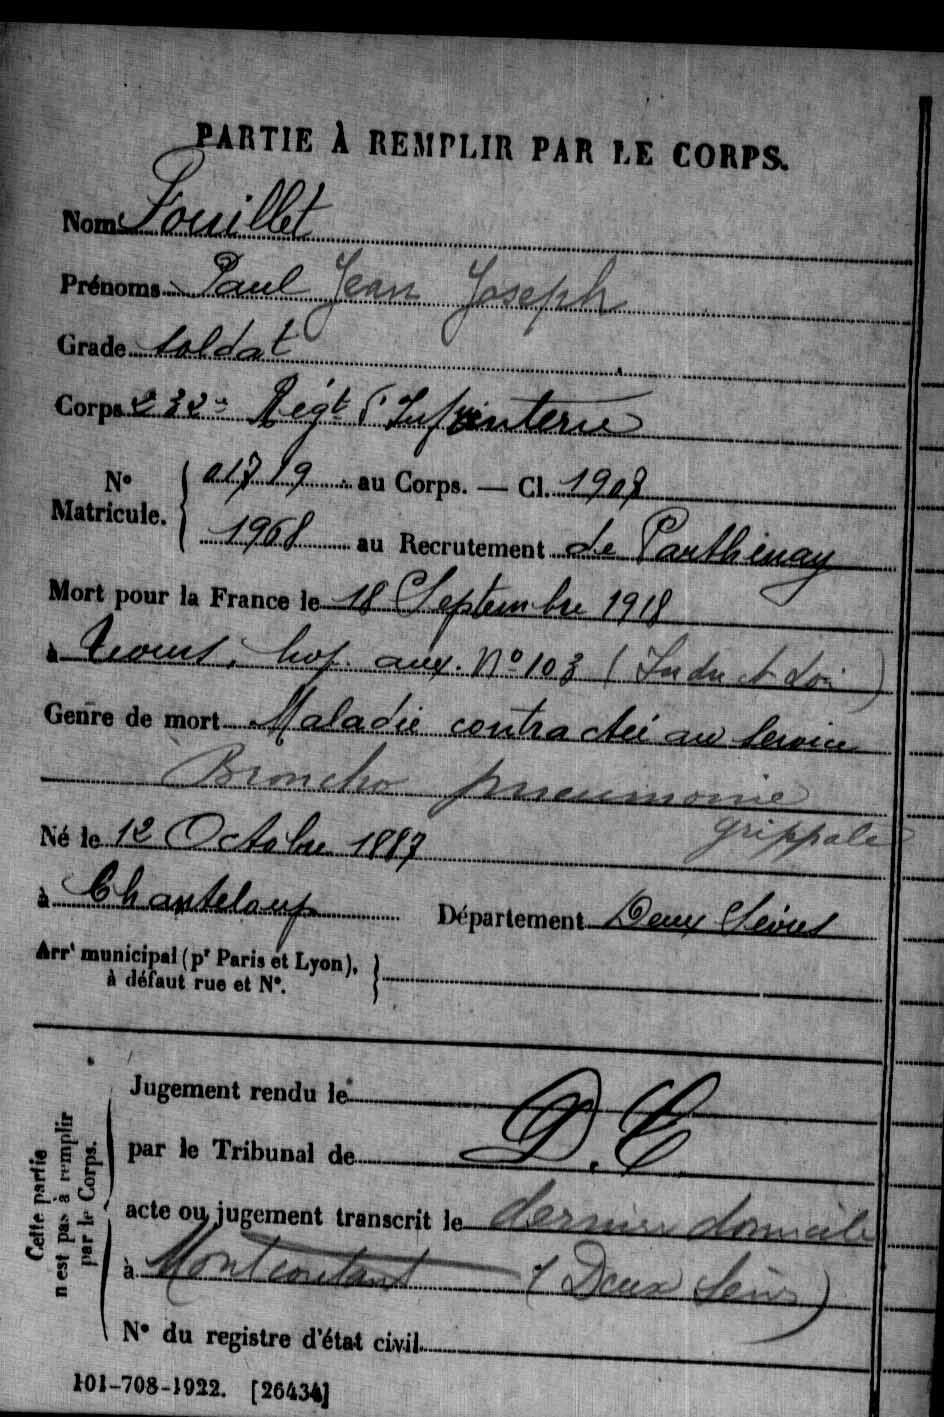 PARTIE À REMPLIR PAR LE CORPS.
Nom Fouillet
Prénoms Paul Jean Joseph
Grade soldat
Corps 232e Régt d'Infanterie
No Matricule. 01719 au Corps. — Cl. 1907
1968 au Recrutement de Parthenay
Mort pour la France le 18 Septembre 1918
à Tours, hop. aux. No 103 (Indre et Loire)
Genre de mort Maladie contractée au service
Broncho pneumonie
grippale
Né le 12 Octobre 1887
à Chanteloup Département Deux Sèvres
Arrt municipal (pr Paris et Lyon),
à défaut rue et No.
Cette partie
n'est pas à remplir
par le Corps.
Jugement rendu le
par le Tribunal de D.C
acte ou jugement transcrit le dernier domicile
à Montcoutant (Deux Sèvres)
No du registre d'état civil
101-708-1922. [26434]